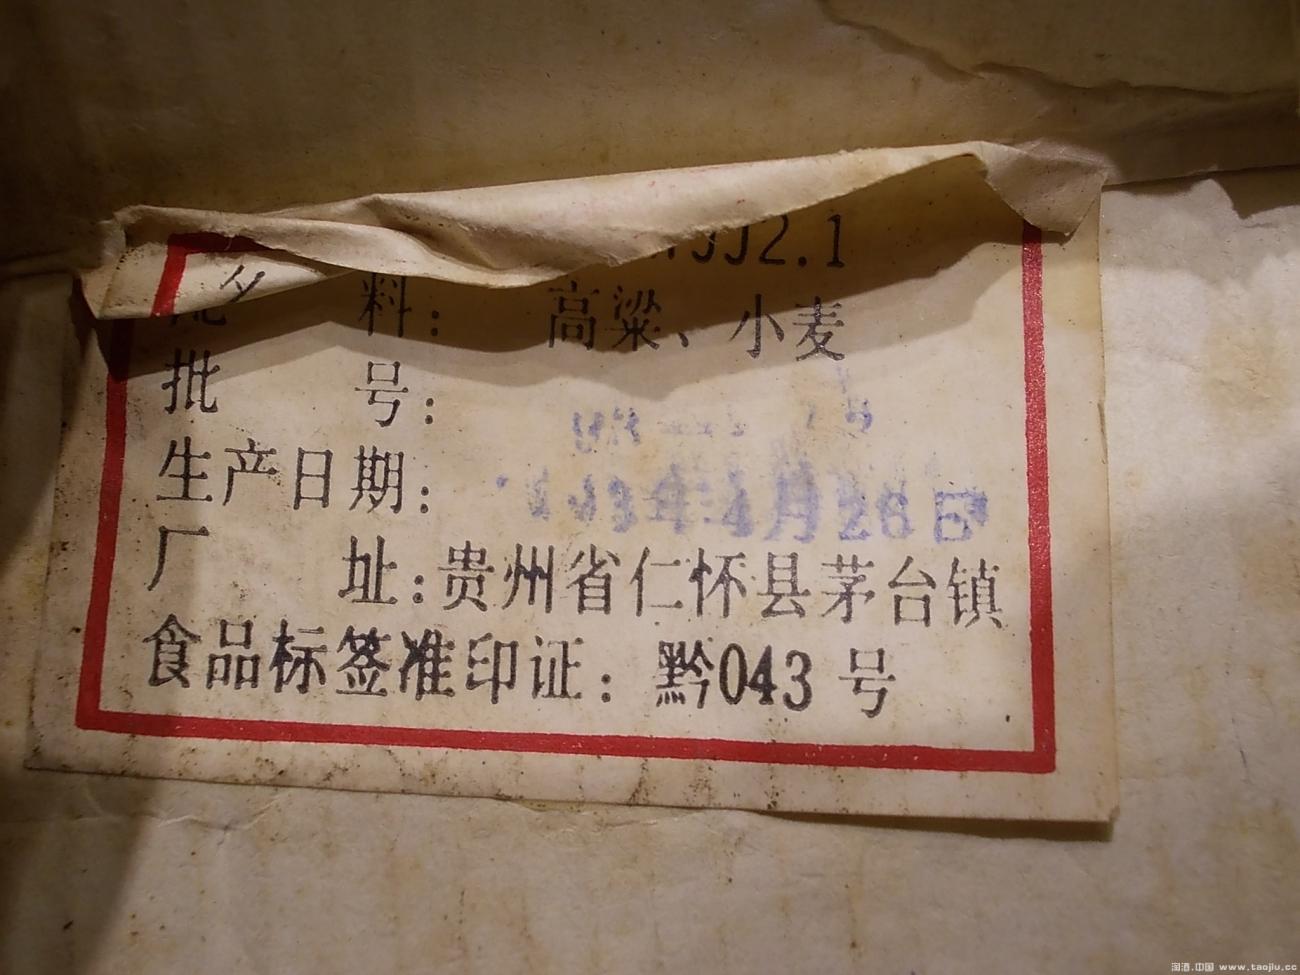 料：高粱、小麦
批号：
生产日期：年4月26日
厂址：贵州省仁怀县茅台镇
食品标签准印证：黔043号
淘酒.中国 www.taojiu.cc